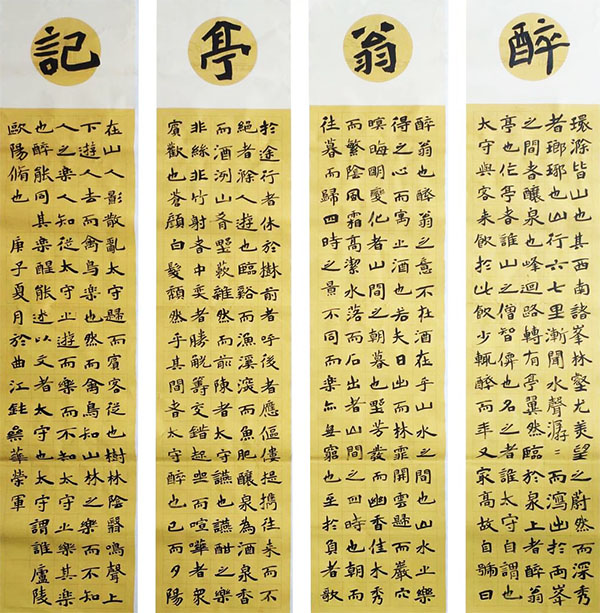 醉
環滁皆山也其西南諸峯林壑尤美望之蔚然而深秀
者瑯琊也山行六七里漸聞水聲潺潺而瀉出于兩峯
之間者釀泉也峰迴路轉有亭翼然臨於泉上者醉翁
亭也作亭者誰山之僧智僊也名之者誰太守自謂也
太守與客來飲於此飲少輒醉而年又冣高故自號曰
翁
醉翁也醉翁之意不在酒在乎山水之間也山水之樂
得之心而寓之酒也若夫日出而林霏開雲歸而巖穴
暝晦明變化者山間之朝暮也野芳發而幽香佳木秀
而繁陰風霜高潔水落而石出者山間之四時也朝而
往暮而歸四時之景不同而樂亦無窮也至於負者歌
亭
於途行者休於樹前者呼後者應傴僂提攜往來而不
絕者滁人遊也臨谿而漁谿深而魚肥釀泉為酒泉香
而酒洌山肴野蔌雜然而前陳者太守讌也讌酣之樂
非絲非竹射者中奕者勝觥籌交錯起坐而喧嘩者衆
賓歡也蒼顏白髮頹然乎其間者太守醉也已而夕陽
記
在山人影散亂太守歸而賓客從也樹林陰翳鳴聲上
下遊人去而禽鳥樂也然而禽鳥知山林之樂而不知
人之樂人知從太守之遊而樂而不知太守之樂其樂
也醉能同其樂醒能述以文者太守也太守謂誰廬陵
歐陽脩也 庚子夏月於曲江 華榮軍